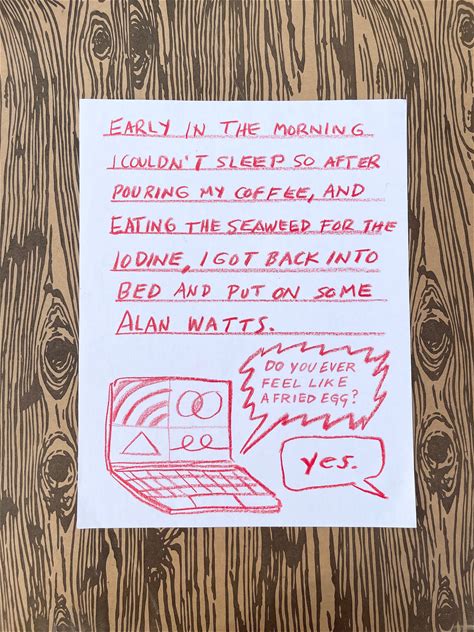 EARLY IN THE MORNING
I COULDN'T SLEEP SO AFTER
POURING MY COFFEE, AND
EATING THE SEAWEED FOR THE
IODINE, I GOT BACK INTO
BED AND PUT ON SOME
ALAN WATTS.
DO YOU EVER
FEEL LIKE
A FRIED EGG?
yes.